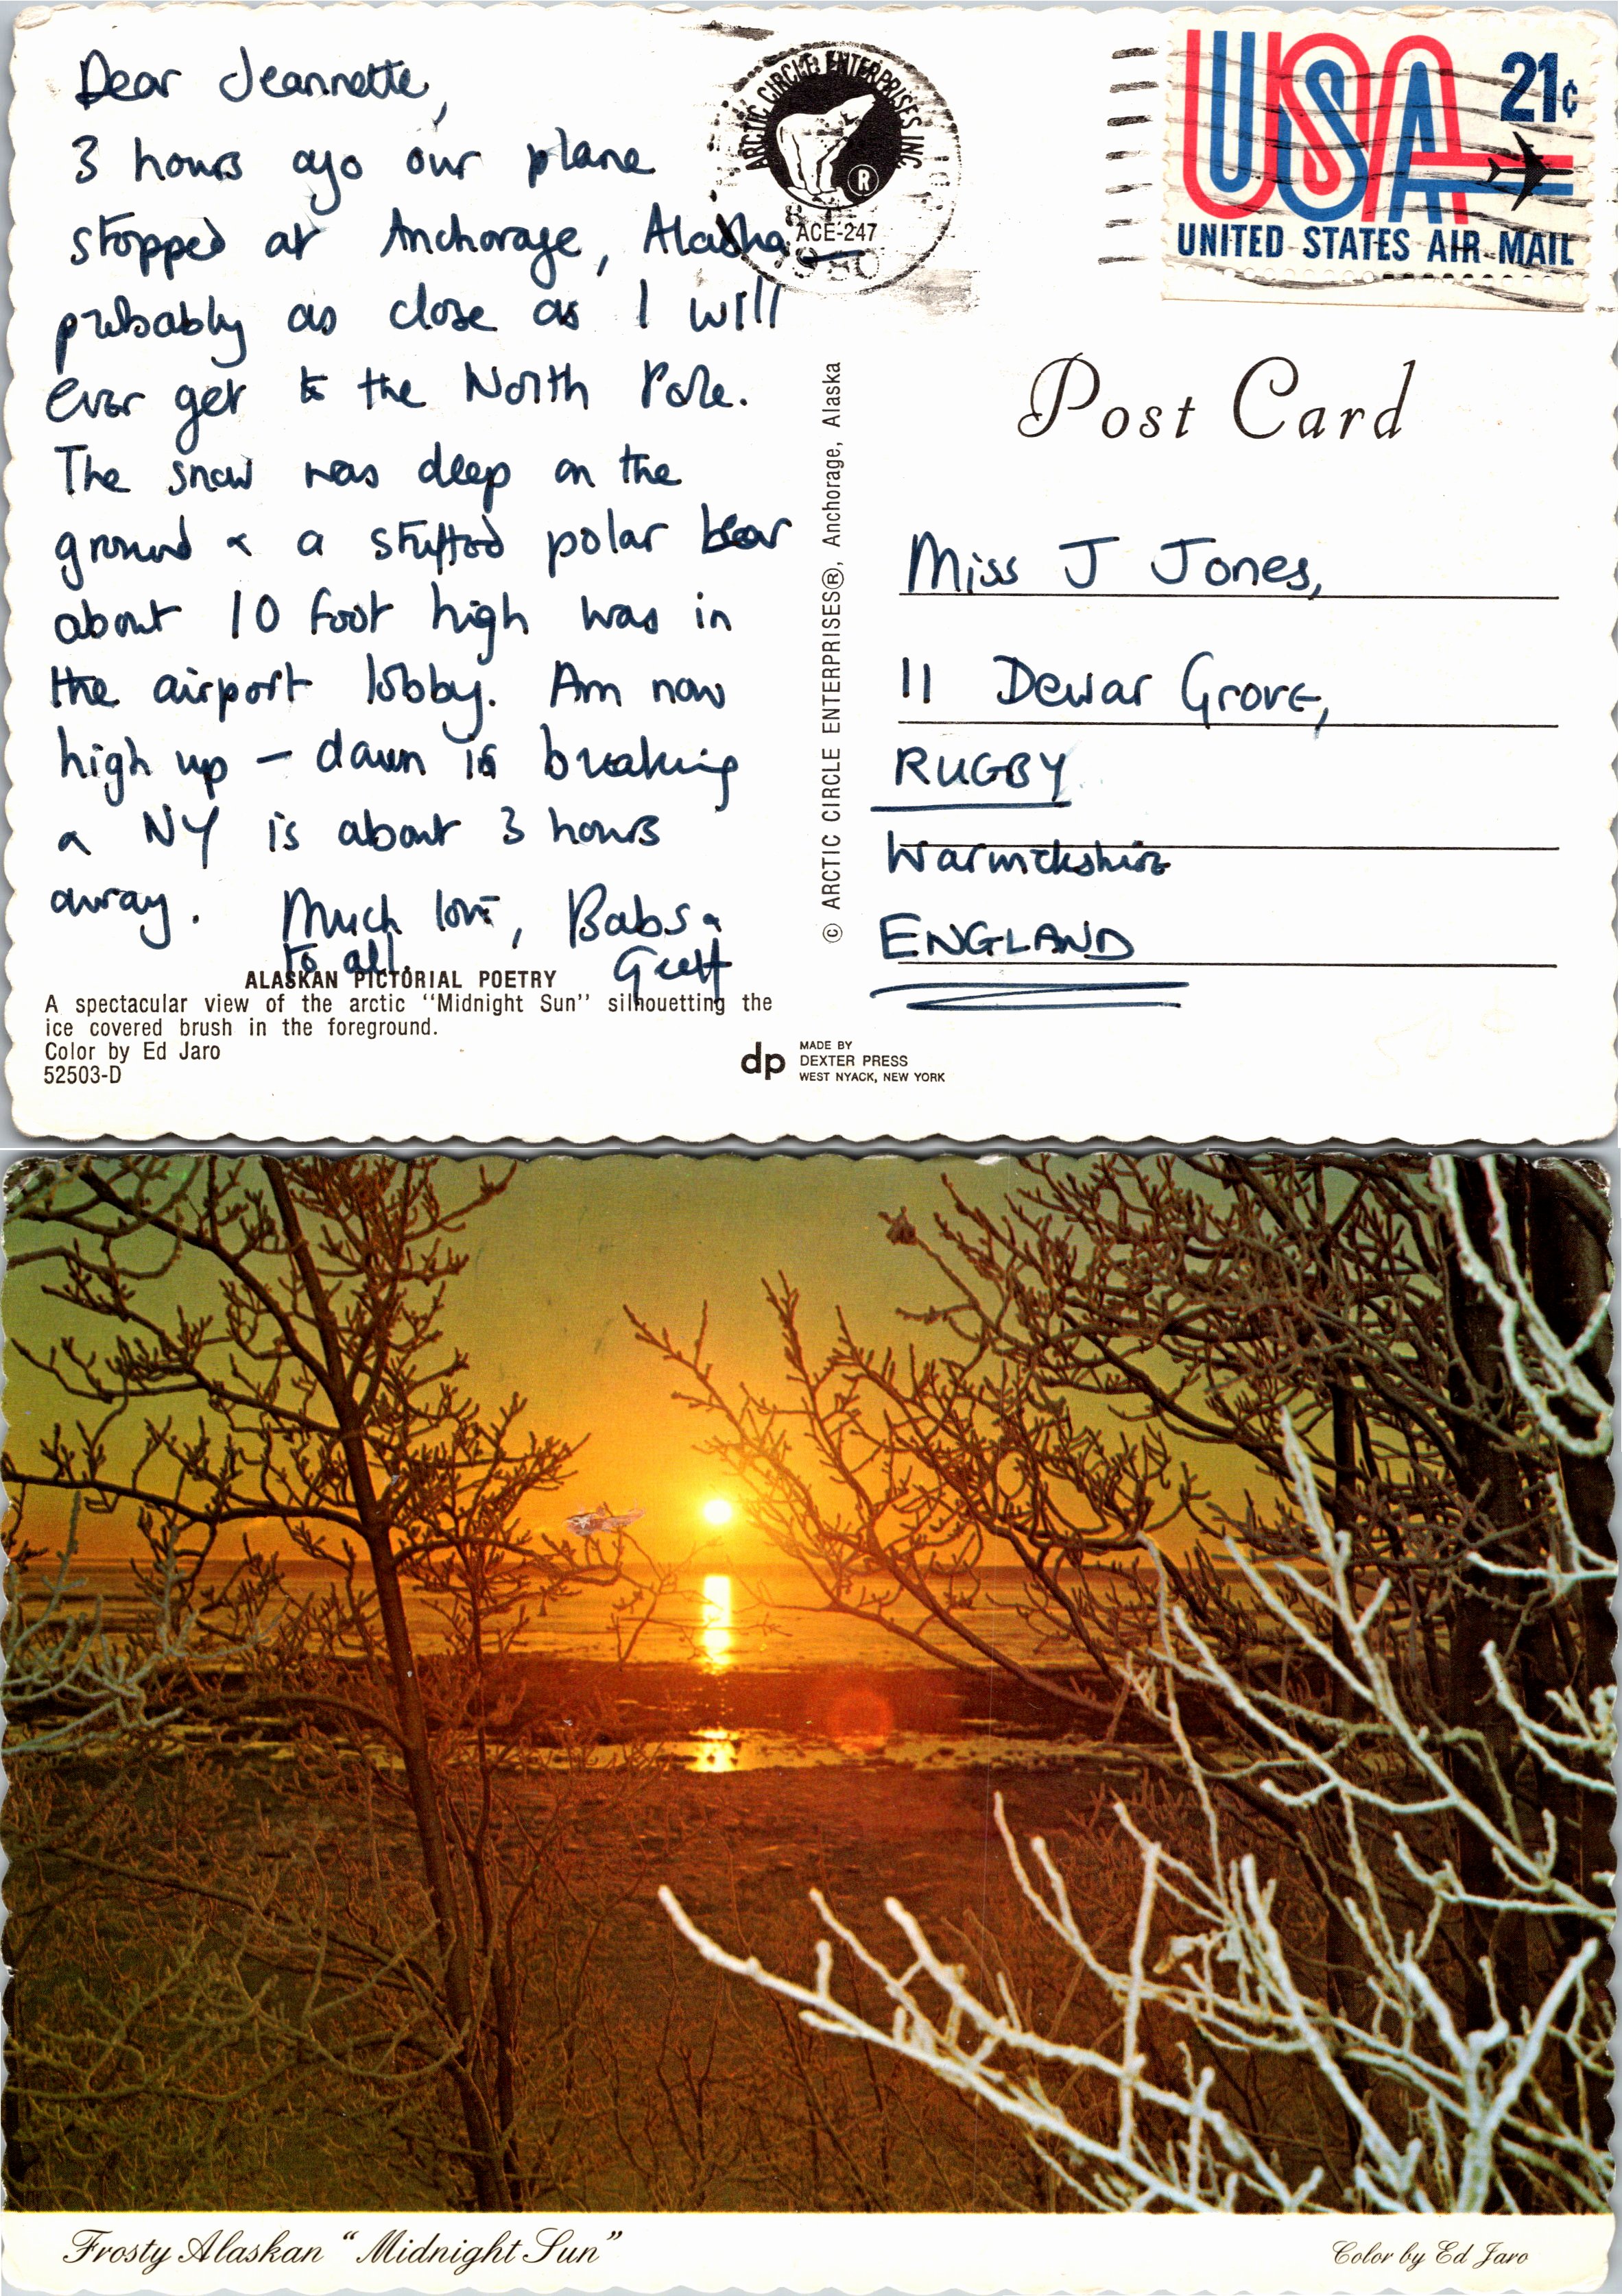 Dear Jeannette,
3 hours ago our plane
stopped at Anchorage, Alaska
probably as close as I will
ever get to the North Pole.
The snow was deep on the
ground & a stuffed polar bear
about 10 foot high was in
the airport lobby. Am now
high up – dawn is breaking
& NY is about 3 hours
away. Much love, Babs &
to all. Geoff
ALASKAN PICTORIAL POETRY
A spectacular view of the arctic "Midnight Sun" silhouetting the
ice covered brush in the foreground.
Color by Ed Jaro
52503-D
ARCTIC CIRCLE ENTERPRISES INC.
®
ACE-247
1980
© ARCTIC CIRCLE ENTERPRISES®, Anchorage, Alaska
dp
MADE BY
DEXTER PRESS
WEST NYACK, NEW YORK
USA
21¢
UNITED STATES AIR MAIL
Post Card
Miss J Jones,
11 Dewar Grove,
RUGBY
Warwickshire
ENGLAND
Frosty Alaskan "Midnight Sun"
Color by Ed Jaro